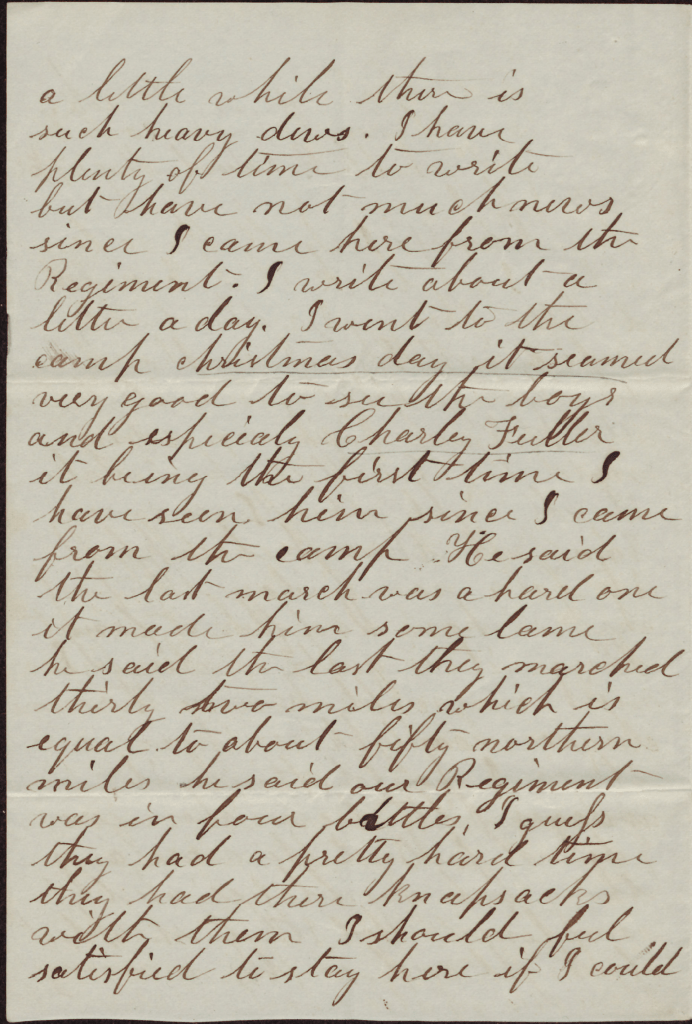 a little while there is
such heavy dews. I have
plenty of time to write
but I have not much news
since I came here from the
Regiment. I write about a
letter a day. I went to the
camp christmas day it seamed
very good to see the boys
and especialy Charley Fuller
it being the first time I
have seen him since I came
from the camp He said
the last march was a hard one
it made him some lame
he said the last they marched
thirty two miles which is
equal to about fifty northern
miles he said our Regiment
was in four battles, I guess
they had a pretty hard time
they had there knapsacks
with them I should feel
satisfied to stay here if I could